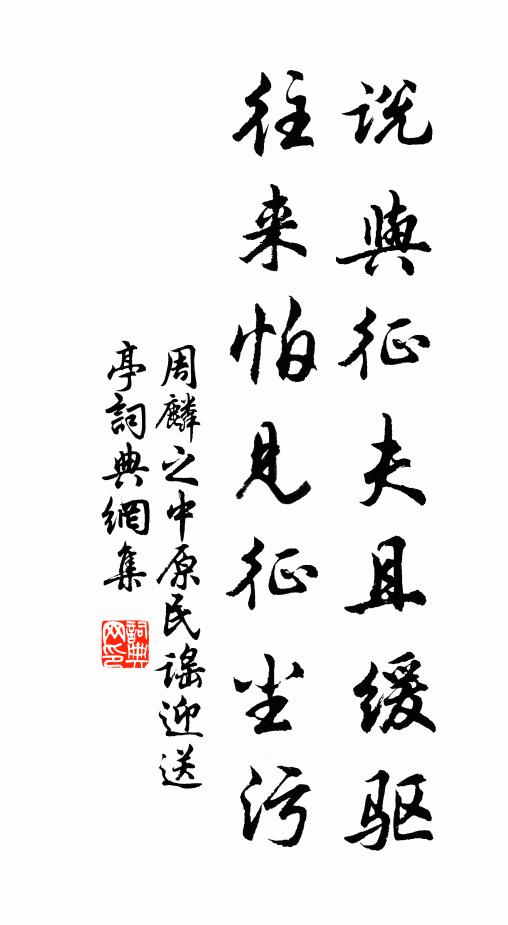 说與征夫且缓驱
往来怕见征尘污
周麟之中原民謡迎送
亭詞典網集
詞典网印